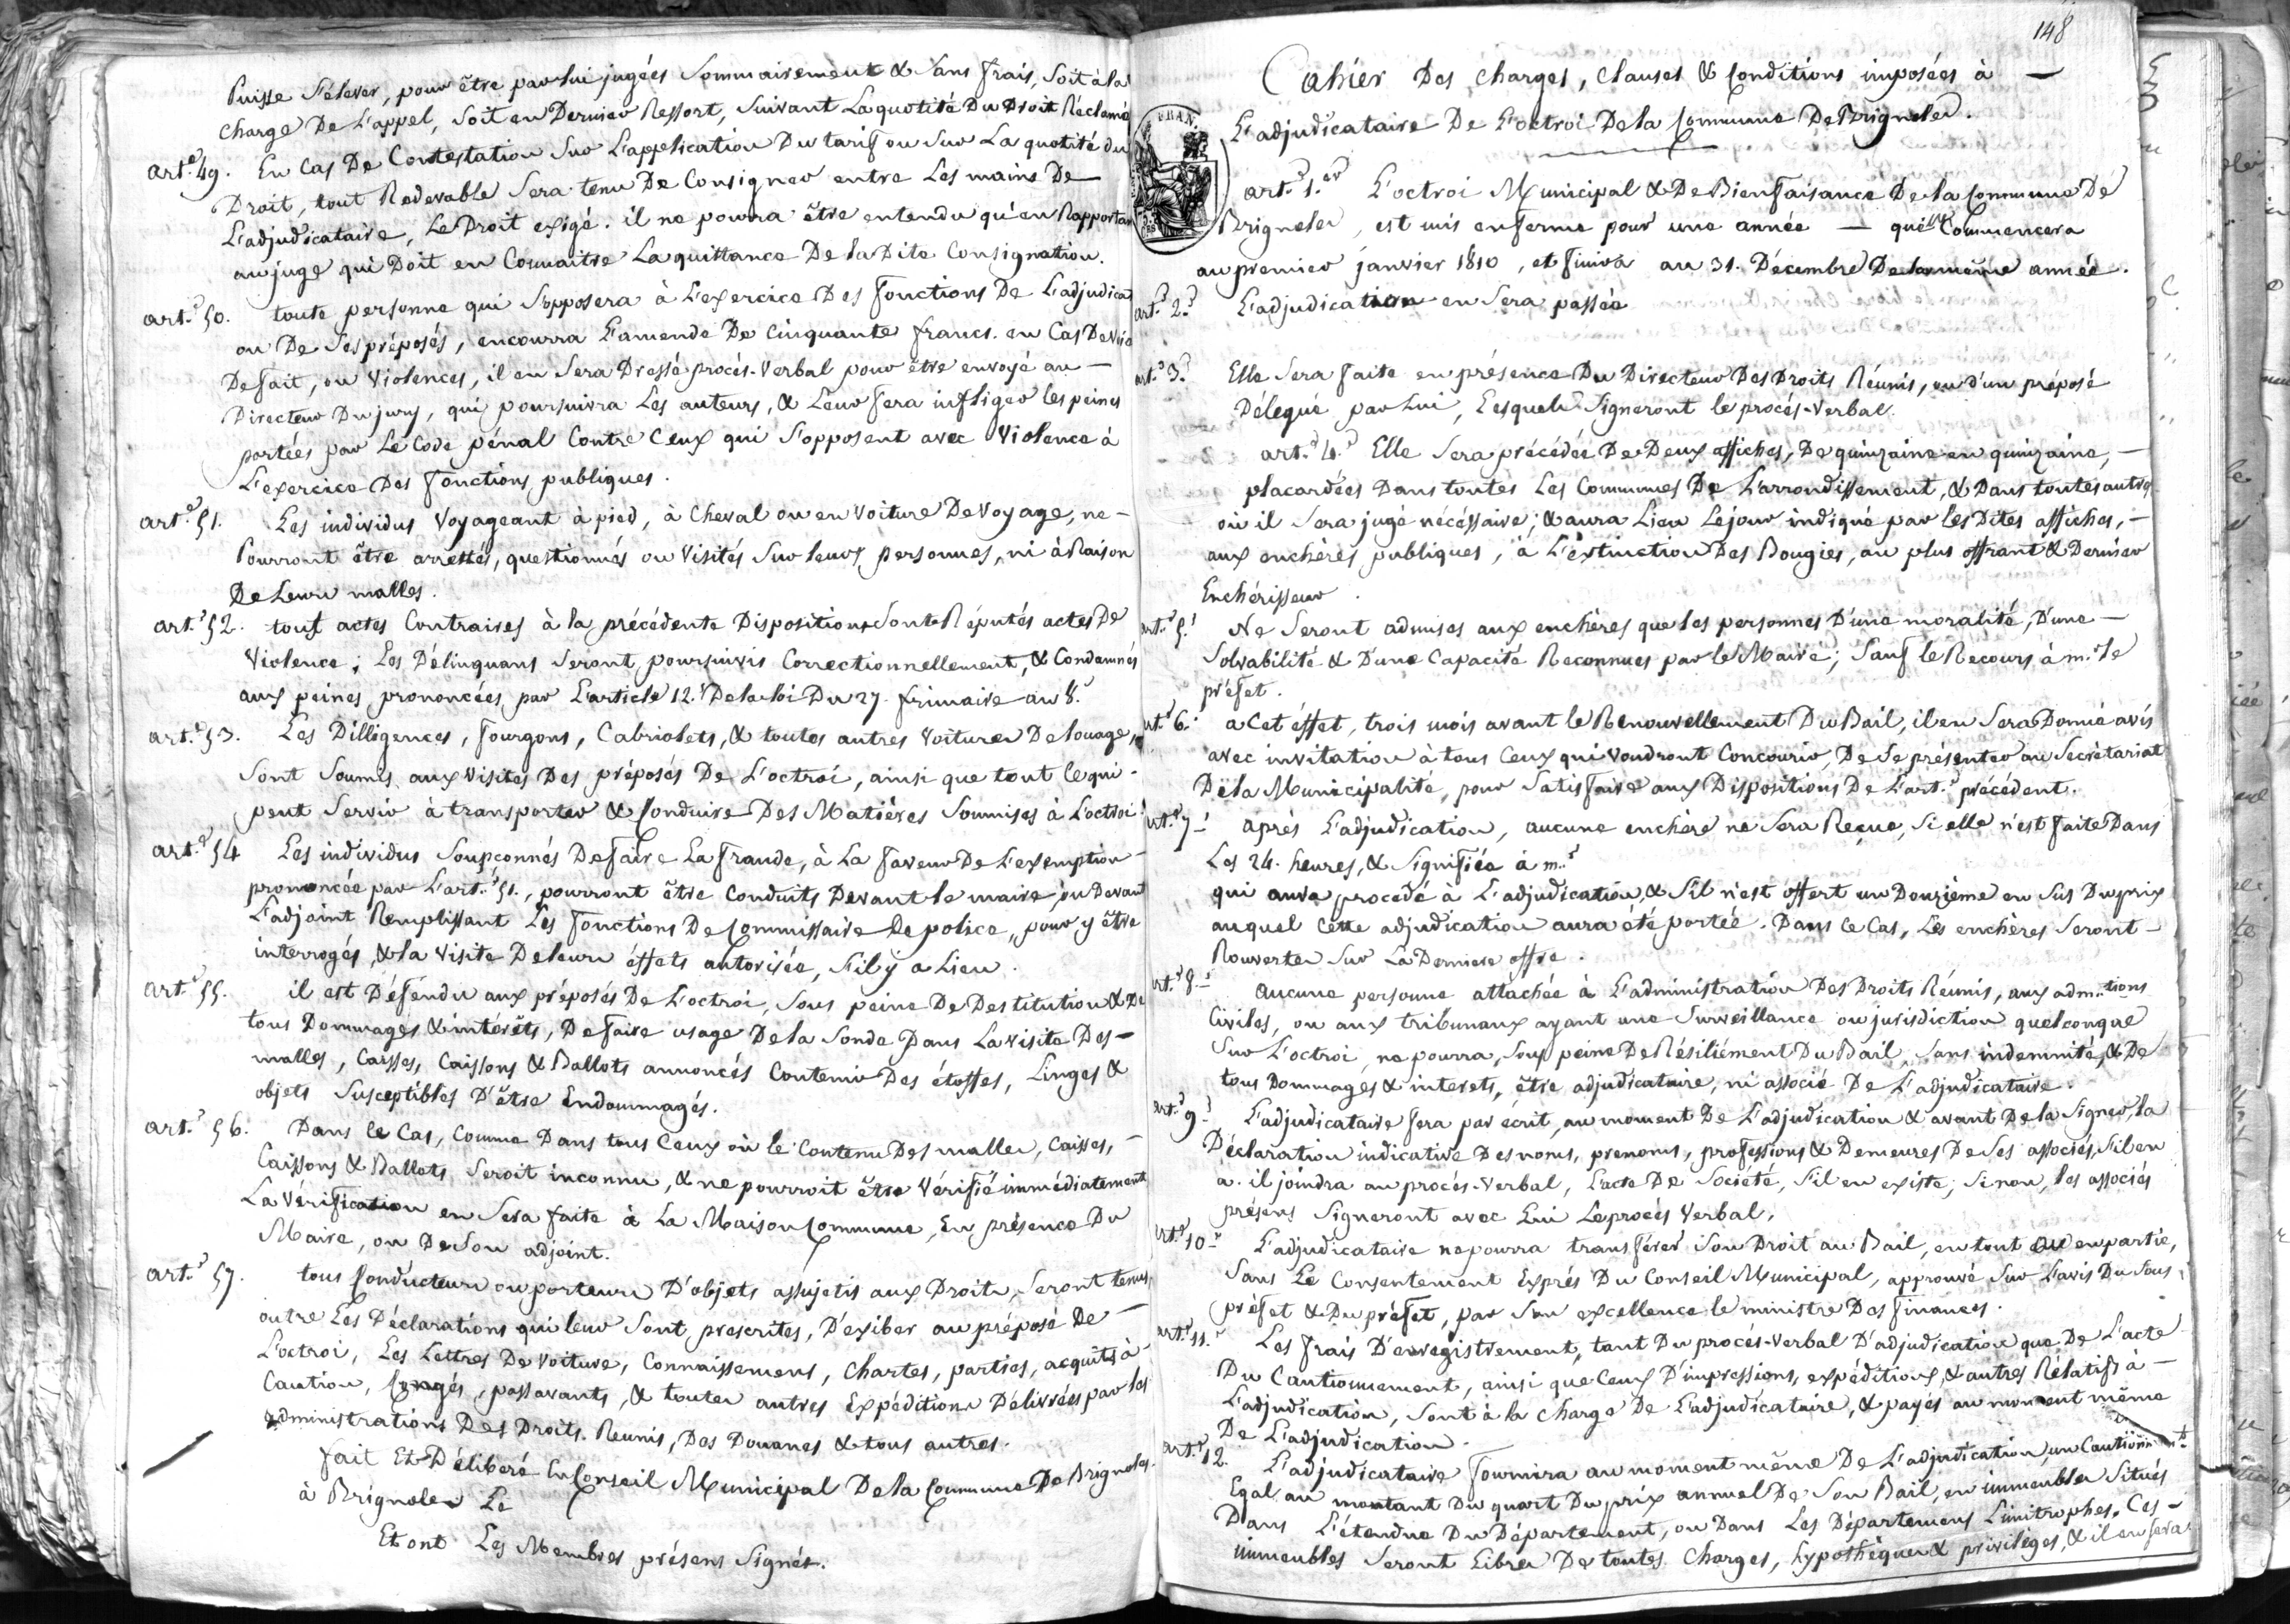 Puisse S'élever, pour être par lui jugées Sommairement & Sans frais, Soit à la
charge De L'appel, Soit en Dernier Ressort, Suivant La quotité Du Droit Réclamé
art.^e 49. En Cas De Contestation Sur L'application Du tarif ou Sur La quotité du
Droit, tout Redevable Sera tenu De Consigner entre Les mains De
L'adjudicataire, Le Droit exigé. il ne pourra être entendu qu'en Rapportan
au juge qui Doit en Connaitre La quittance De la Dite Consignation.
art.^e 50. toute personne qui S'opposera à L'exercice Des fonctions De L'adjudica
ou De Ses préposés, encourra L'amende De Cinquante francs. en Cas De Voie
De fait, ou Violences, il en Sera Dressé procés-Verbal pour être envoyé au —
Directeur Du jury, qui poursuivra Les auteurs, & Leur fera infliger les peines
portées par Le Code pénal Contre Ceux qui S'opposent avec Violence à
L'exercice Des fonctions publiques.
art.^e 51. Les individus Voyageant à pied, à Cheval ou en Voiture De Voyage, ne -
Pourront être arrettés, questionnés ou Visités Sur leurs personnes, ni à Raison
De Leurs malles.
art.^e 52. tous actes Contraires à la précédente Disposition, Sont Réputés actes De
Violence; Les Délinquans Seront poursuivis Correctionnellement, & Condamnés
aux peines prononcées par L'article 12. De la loi Du 27. frimaire an 8.
art.^e 53. Les Dilligences, fourgons, Cabriolets, & toutes autres Voitures De louage,
Sont Soumis aux Visites Des préposés De L'octroi, ainsi que tout Ce qui -
peut Servir à transporter & Conduire Des Matières Soumises à L'octroi
art.^e 54 Les individus Soupçonnés De faire La fraude, à La faveur De L'exemption
prononcée par L'art.^e 51., pourront être Conduits Devant le maire ou Devant
L'adjoint Remplissant Les fonctions De Commissaire De police, pour y être
interrogés, & la Visite De leurs éffets autorisée, S'il y a Lieu.
art.^e 55. il est Défendu aux préposés De L'octroi, Sous peine De Destitution & De
tous Dommages & intérêts, De faire usage De la Sonde Dans La Visite Des —
malles, Caisses, Caissons & Ballots annoncés Contenir Des étoffes, Linges &
objets Susceptibles D'être Endommagés.
art.^e 56. Dans Ce Cas, Comme Dans tous Ceux où le Contenu Des malles, Caisses, —
Caissons & Ballots Seroit inconnu, & ne pourroit être Vérifié immédiatement
La Vérification en Sera faite à La Maison Commune, En présence Du
Maire, ou De Son adjoint.
art.^e 57. tous Conducteurs ou porteurs D'objets assujetis aux Droits, Seront tenus
outre Les Déclarations qui leur Sont prescrites, D'exiber au préposé De —
L'octroi, Les Lettres De Voiture, Connaissemens, Chartes, parties, acquits à
Caution, Congés, passavants, & toutes autres Expéditions Délivrées par les
administrations Des Droits Réunis, Des Douanes & tous autres.
fait Et Délibéré En Conseil Municipal De la Commune De Brignoles.
à Brignoles Le
Et ont Les Membres présens Signés.
148
Cahier Des Charges, Clauses & Conditions imposées à —
L'adjudicataire De L'octroi De la Commune De Brignoles.
FRAN.
art.^e 1.^er L'octroi Municipal & De Bienfaisance De la Commune De
Brignoles, est mis en ferme pour une année — qui Commencera
au premier janvier 1810, et finira au 31. Décembre De la même année.
art.^e 2. L'adjudication en Sera passée
art.^e 3. Elle Sera faite en présence Du Directeur Des Droits Réunis, ou d'un préposé
Délégué par Lui, Lesquels Signeront le procés-Verbal.
art.^e 4. Elle Sera précédée De Deux affiches, De quinzaine en quinzaine, —
placardées Dans toutes Les Communes De L'arrondissement, & Dans toutes autres
où il Sera jugé nécéssaire; & aura Lieu Le jour indiqué par les Dites affiches, —
aux enchères publiques, à L'extinction Des Bougies, au plus offrant & Dernier
Enchérisseur.
art.^e 5. Ne Seront admises aux enchères que les personnes D'une moralité, D'une —
Solvabilité & D'une Capacité Reconnues par le Maire; Sauf le Recours à m.^r le
préfet.
art.^e 6. a Cet éffet, trois mois avant le Renouvellement Du Bail, il en Sera Donné avis
avec invitation à tous Ceux qui Voudront Concourir, De Se présenter au Secrétariat
De la Municipalité, pour Satisfaire aux Dispositions De L'art.^e précédent.
art.^e 7. aprés L'adjudication, aucune enchère ne Sera Reçue, Si elle n'est faite Dans
Les 24. heures, & Signifiée à m.^r
qui aura procédé à L'adjudication, & S'il n'est offert un Douzième en Sus Du prix
auquel Cette adjudication aura été portée. Dans Ce Cas, Les enchères Seront —
Rouvertes Sur La Derniere offre.
art.^e 8. aucune personne attachée à L'administration Des Droits Réunis, aux adm.^tions
Civiles, ou aux tribunaux ayant une Surveillance ou jurisdiction quelconque
Sur L'octroi, ne pourra, Sous peine De Résiliement Du Bail, Sans indemnité, & De
tous Dommages & interets, être adjudicataire, ni associé De L'adjudicataire.
art.^e 9. L'adjudicataire fera par écrit, au moment De L'adjudication & avant De la Signer, la
Déclaration indicative Des noms, prenoms, professions & Demeures De Ses associés, S'il en
a. il joindra au procés-Verbal, L'acte De Société, S'il en existe; Sinon, les associés
présens Signeront avec Lui Le procés Verbal.
art.^e 10. L'adjudicataire ne pourra transférer Son Droit au Bail, en tout ou en partie,
Sans Le Consentement Exprés Du Conseil Municipal, approuvé Sur L'avis Du Sous
préfet & Du préfet, par Son excellence le ministre Des finances.
art.^e 11. Les frais D'enregistrement, tant Du procés-Verbal D'adjudication que De L'acte
Du Cautionnement, ainsi que Ceux D'impressions, expéditions, & autres Rélatifs à —
L'adjudication, Sont à la Charge De L'adjudicataire, & payés au moment même
De L'adjudication.
art.^e 12. L'adjudicataire fournira au moment même De L'adjudication, un Cautionnem.^t
Egal au montant Du quart Du prix annuel De Son Bail, en immeubles Situés
Dans L'étendue Du Département, ou Dans Les Départemens Limitrophes. Ces —
immeubles Seront Libres De toutes Charges, hypothèques & privilèges, & il en sera